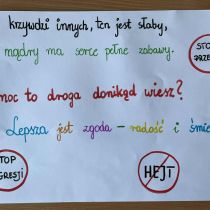 krzywdzi innych, ten jest słaby,
mądry ma serce pełne zabawy.
STOP
moc to droga donikąd wiesz?
Lepsza jest zgoda - radość i śmie
STOP
GRESJI
HEJT